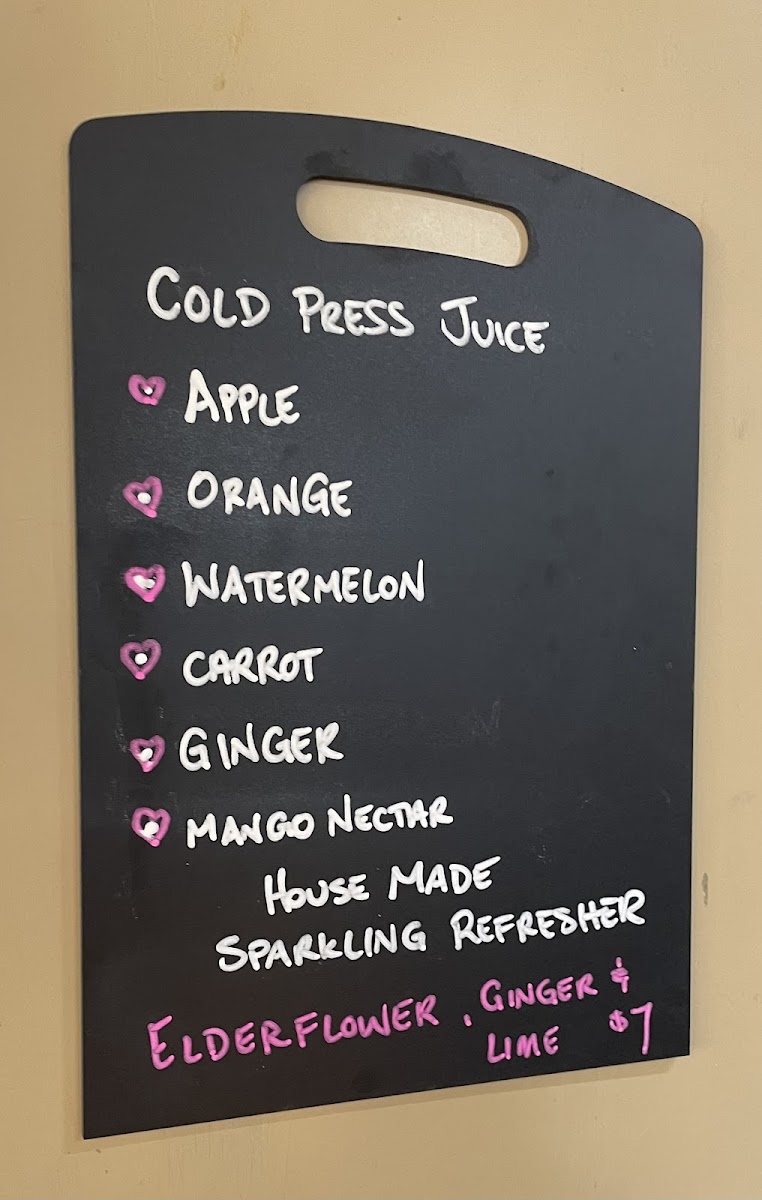 COLD PRESS JUICE
APPLE
ORANGE
WATERMELON
CARROT
GINGER
MANGO NECTAR
HOUSE MADE
SPARKLING REFRESHER
ELDERFLOWER, GINGER &
LIME $7